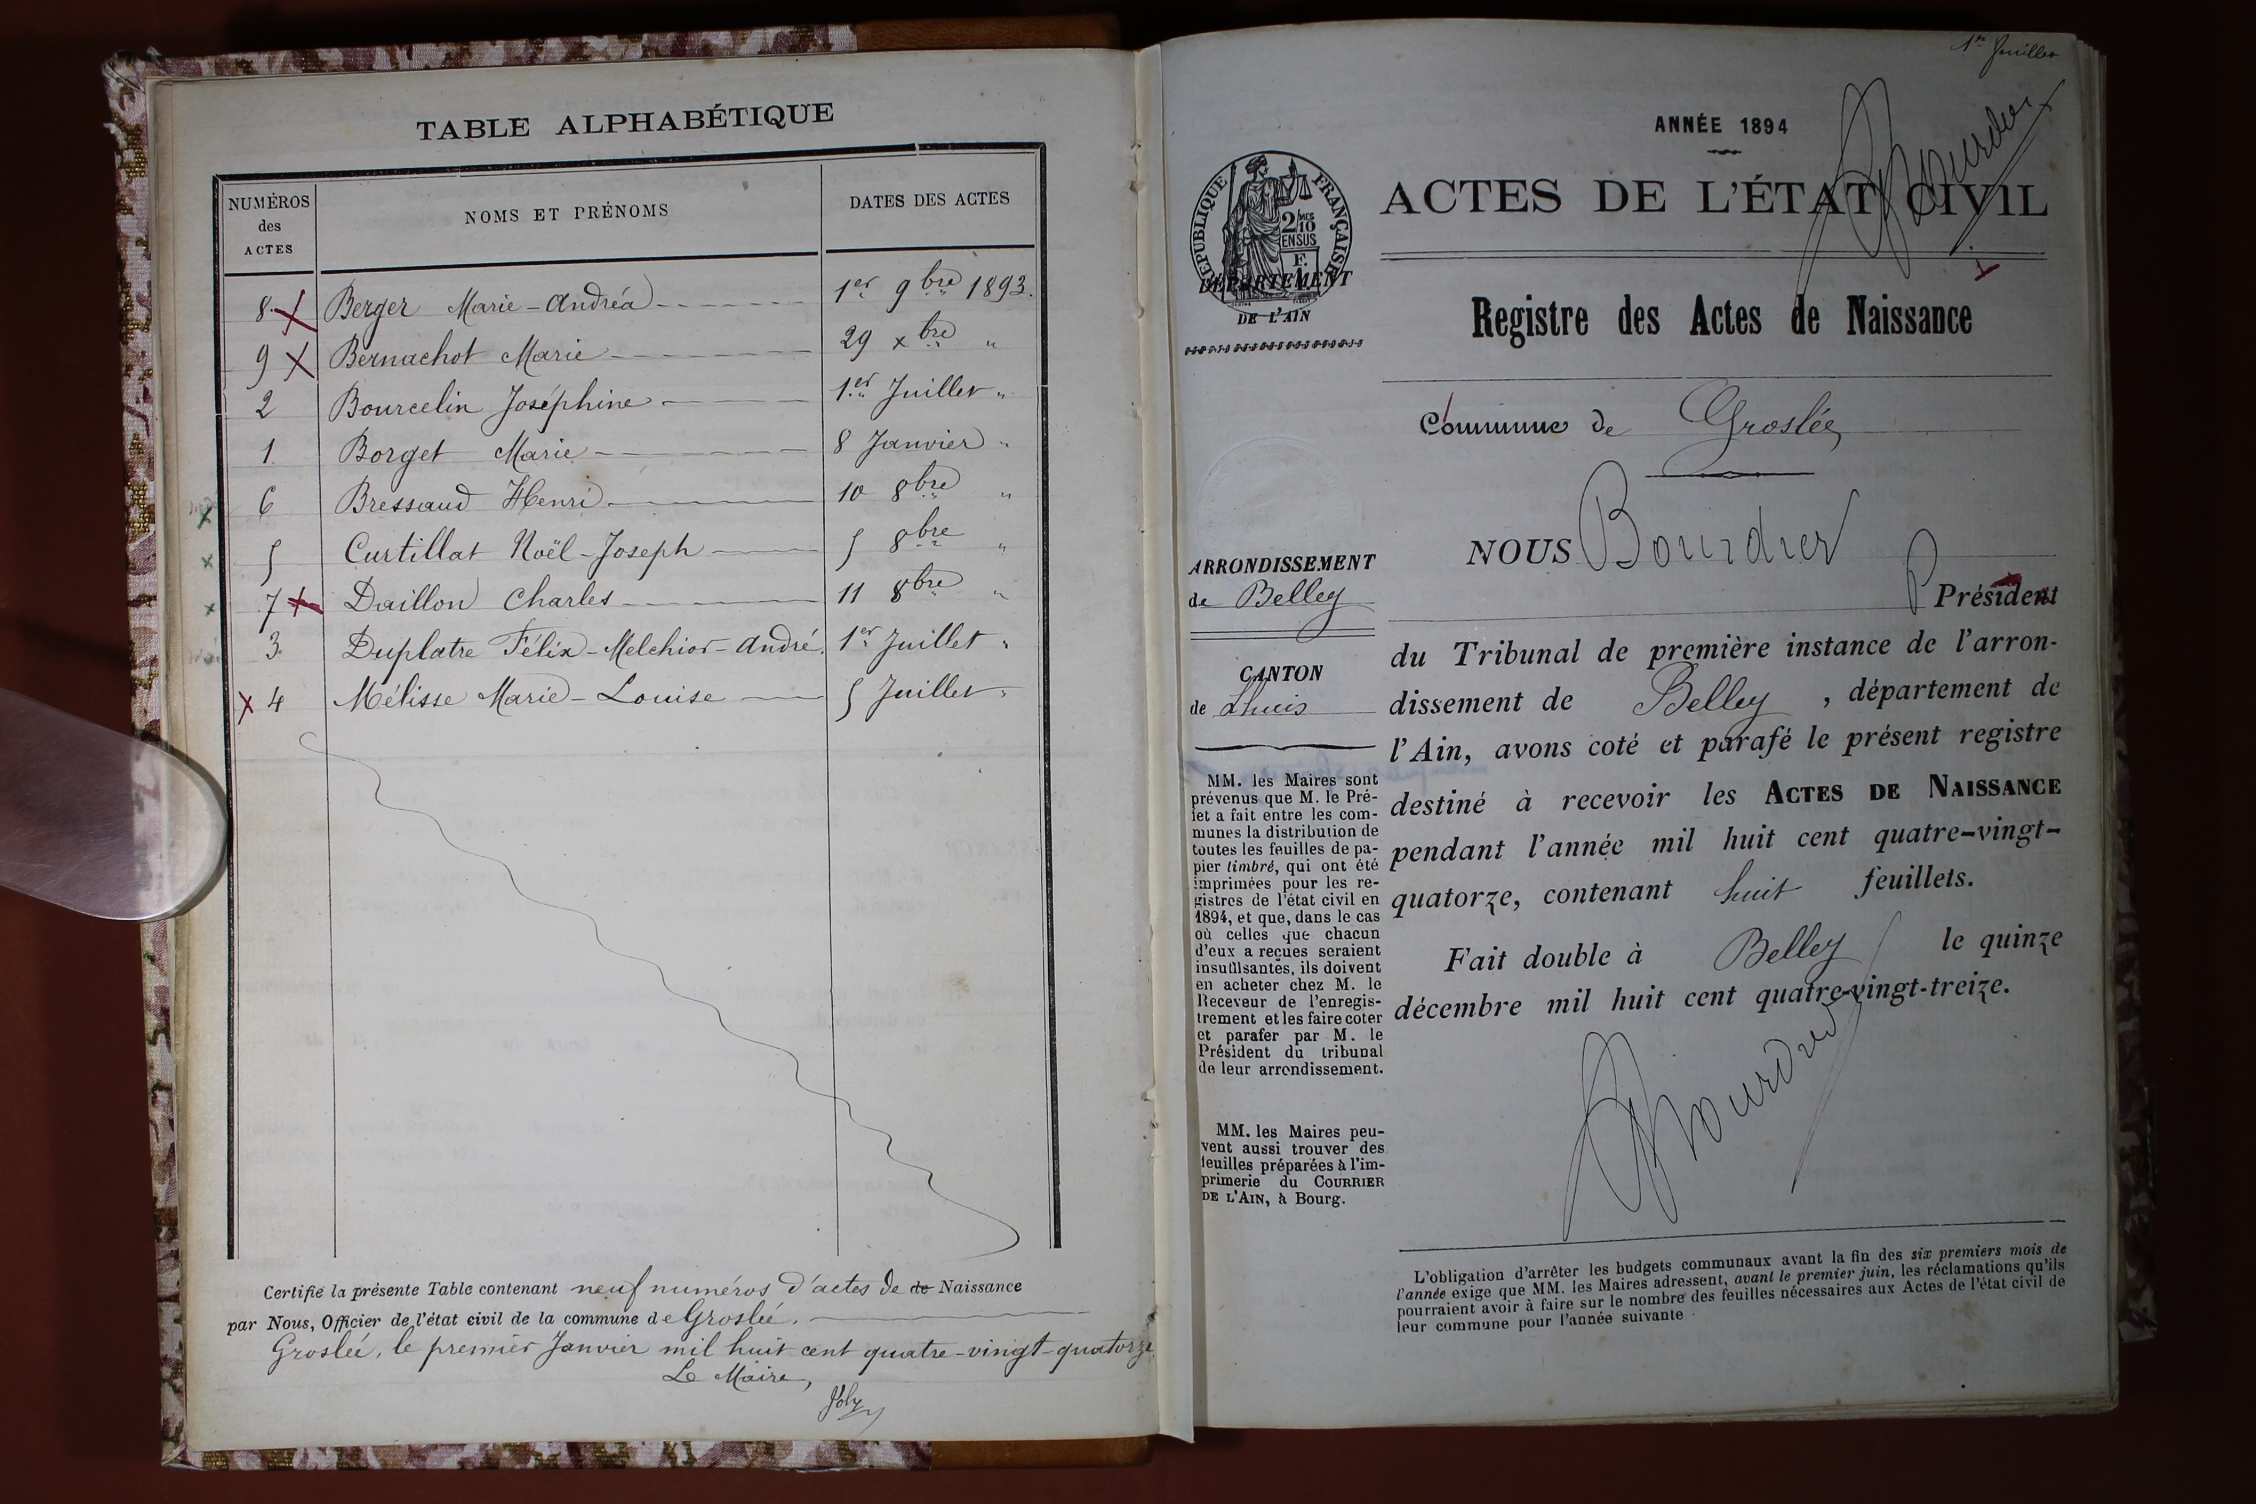 TABLE ALPHABÉTIQUE
NUMÉROS des ACTES
NOMS ET PRÉNOMS
DATES DES ACTES
8 Berger Marie-Andréa 1er 9bre 1893.
9 Bernachot Marie 29 xbre "
2 Bourcelin Joséphine 1er Juillet "
1 Borget Marie 8 Janvier "
6 Bressaud Henri 10 8bre "
5 Curtillat Noël-Joseph 5 8bre "
7 Daillon Charles 11 8bre "
3 Duplatre Félix-Melchior-André. 1er Juillet "
4 Mélisse Marie-Louise 5 Juillet "
Certifié la présente Table contenant neuf numéros d'actes de de Naissance
par Nous, Officier de l'état civil de la commune de Groslée.
Groslée, le premier Janvier mil huit cent quatre-vingt-quatorze
Le Maire,
Joly
1er feuillet
Bourdier
ANNÉE 1894
ACTES DE L'ÉTAT CIVIL
RÉPUBLIQUE FRANÇAISE
2/10 MES
EN SUS
F.
DÉPARTEMENT
DE L'AIN
Registre des Actes de Naissance
Commune de Groslée
ARRONDISSEMENT
de Belley
CANTON
de Lhuis
MM. les Maires sont
prévenus que M. le Pré-
fet a fait entre les com-
munes la distribution de
toutes les feuilles de pa-
pier timbré, qui ont été
imprimées pour les re-
gistres de l'état civil en
1894, et que, dans le cas
où celles que chacun
d'eux a reçues seraient
insuffisantes, ils doivent
en acheter chez M. le
Receveur de l'enregis-
trement et les faire coter
et parafer par M. le
Président du tribunal
de leur arrondissement.
MM. les Maires peu-
vent aussi trouver des
feuilles préparées à l'im-
primerie du COURRIER
DE L'AIN, à Bourg.
NOUS Bourdier
Président
du Tribunal de première instance de l'arron-
dissement de Belley, département de
l'Ain, avons coté et parafé le présent registre
destiné à recevoir les ACTES DE NAISSANCE
pendant l'année mil huit cent quatre-vingt-
quatorze, contenant huit feuillets.
Fait double à Belley le quinze
décembre mil huit cent quatre-vingt-treize.
Bourdier
L'obligation d'arrêter les budgets communaux avant la fin des six premiers mois de
l'année exige que MM. les Maires adressent, avant le premier juin, les réclamations qu'ils
pourraient avoir à faire sur le nombre des feuilles nécessaires aux Actes de l'état civil de
leur commune pour l'année suivante